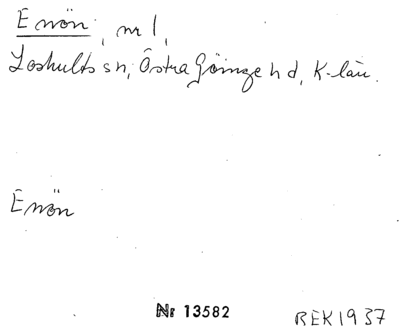 Enön, nr 1,
Loshults sn, Östra Göinge hd, K-län.
Enön
Nr 13582
REK 1937